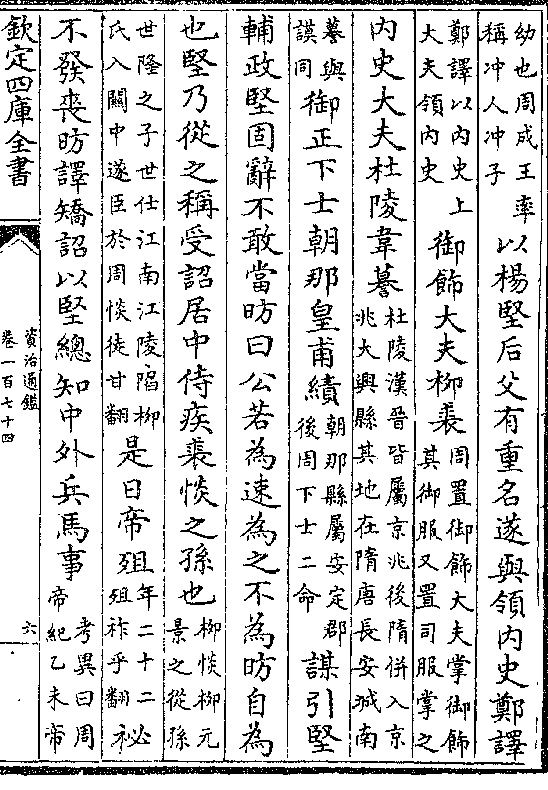 幼也周成王率稱冲人冲子以楊堅后父有重名遂與領内史鄭譯
鄭譯以内史上大夫領内史御飾大夫柳裘周置御飾大夫掌御飾其御服又置司服掌之
内史大夫杜陵韋謩杜陵漢晉皆屬京兆後隋併入京兆大興縣其地在隋唐長安城南
謩與謨同御正下士朝那皇甫績朝那縣屬安定郡後周下士二命謀引堅
輔政堅固辭不敢當昉曰公若為速為之不為昉自為
也堅乃從之稱受詔居中侍疾裘惔之孫也柳惔柳元景之從孫
世隆之子世仕江南江陵陷柳氏入關中遂臣於周惔徒甘翻是日帝殂年二十二殂祚乎翻祕
不發喪昉譯矯詔以堅總知中外兵馬事考異曰周帝紀乙未帝
欽定四庫全書
資治通鑑
卷一百七十四
六